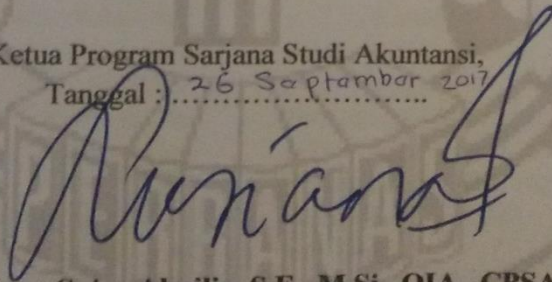 Ketua Program Sarjana Studi Akuntansi,
Tanggal : 26 September 2017
S.E., M.Si., QIA., CPSA